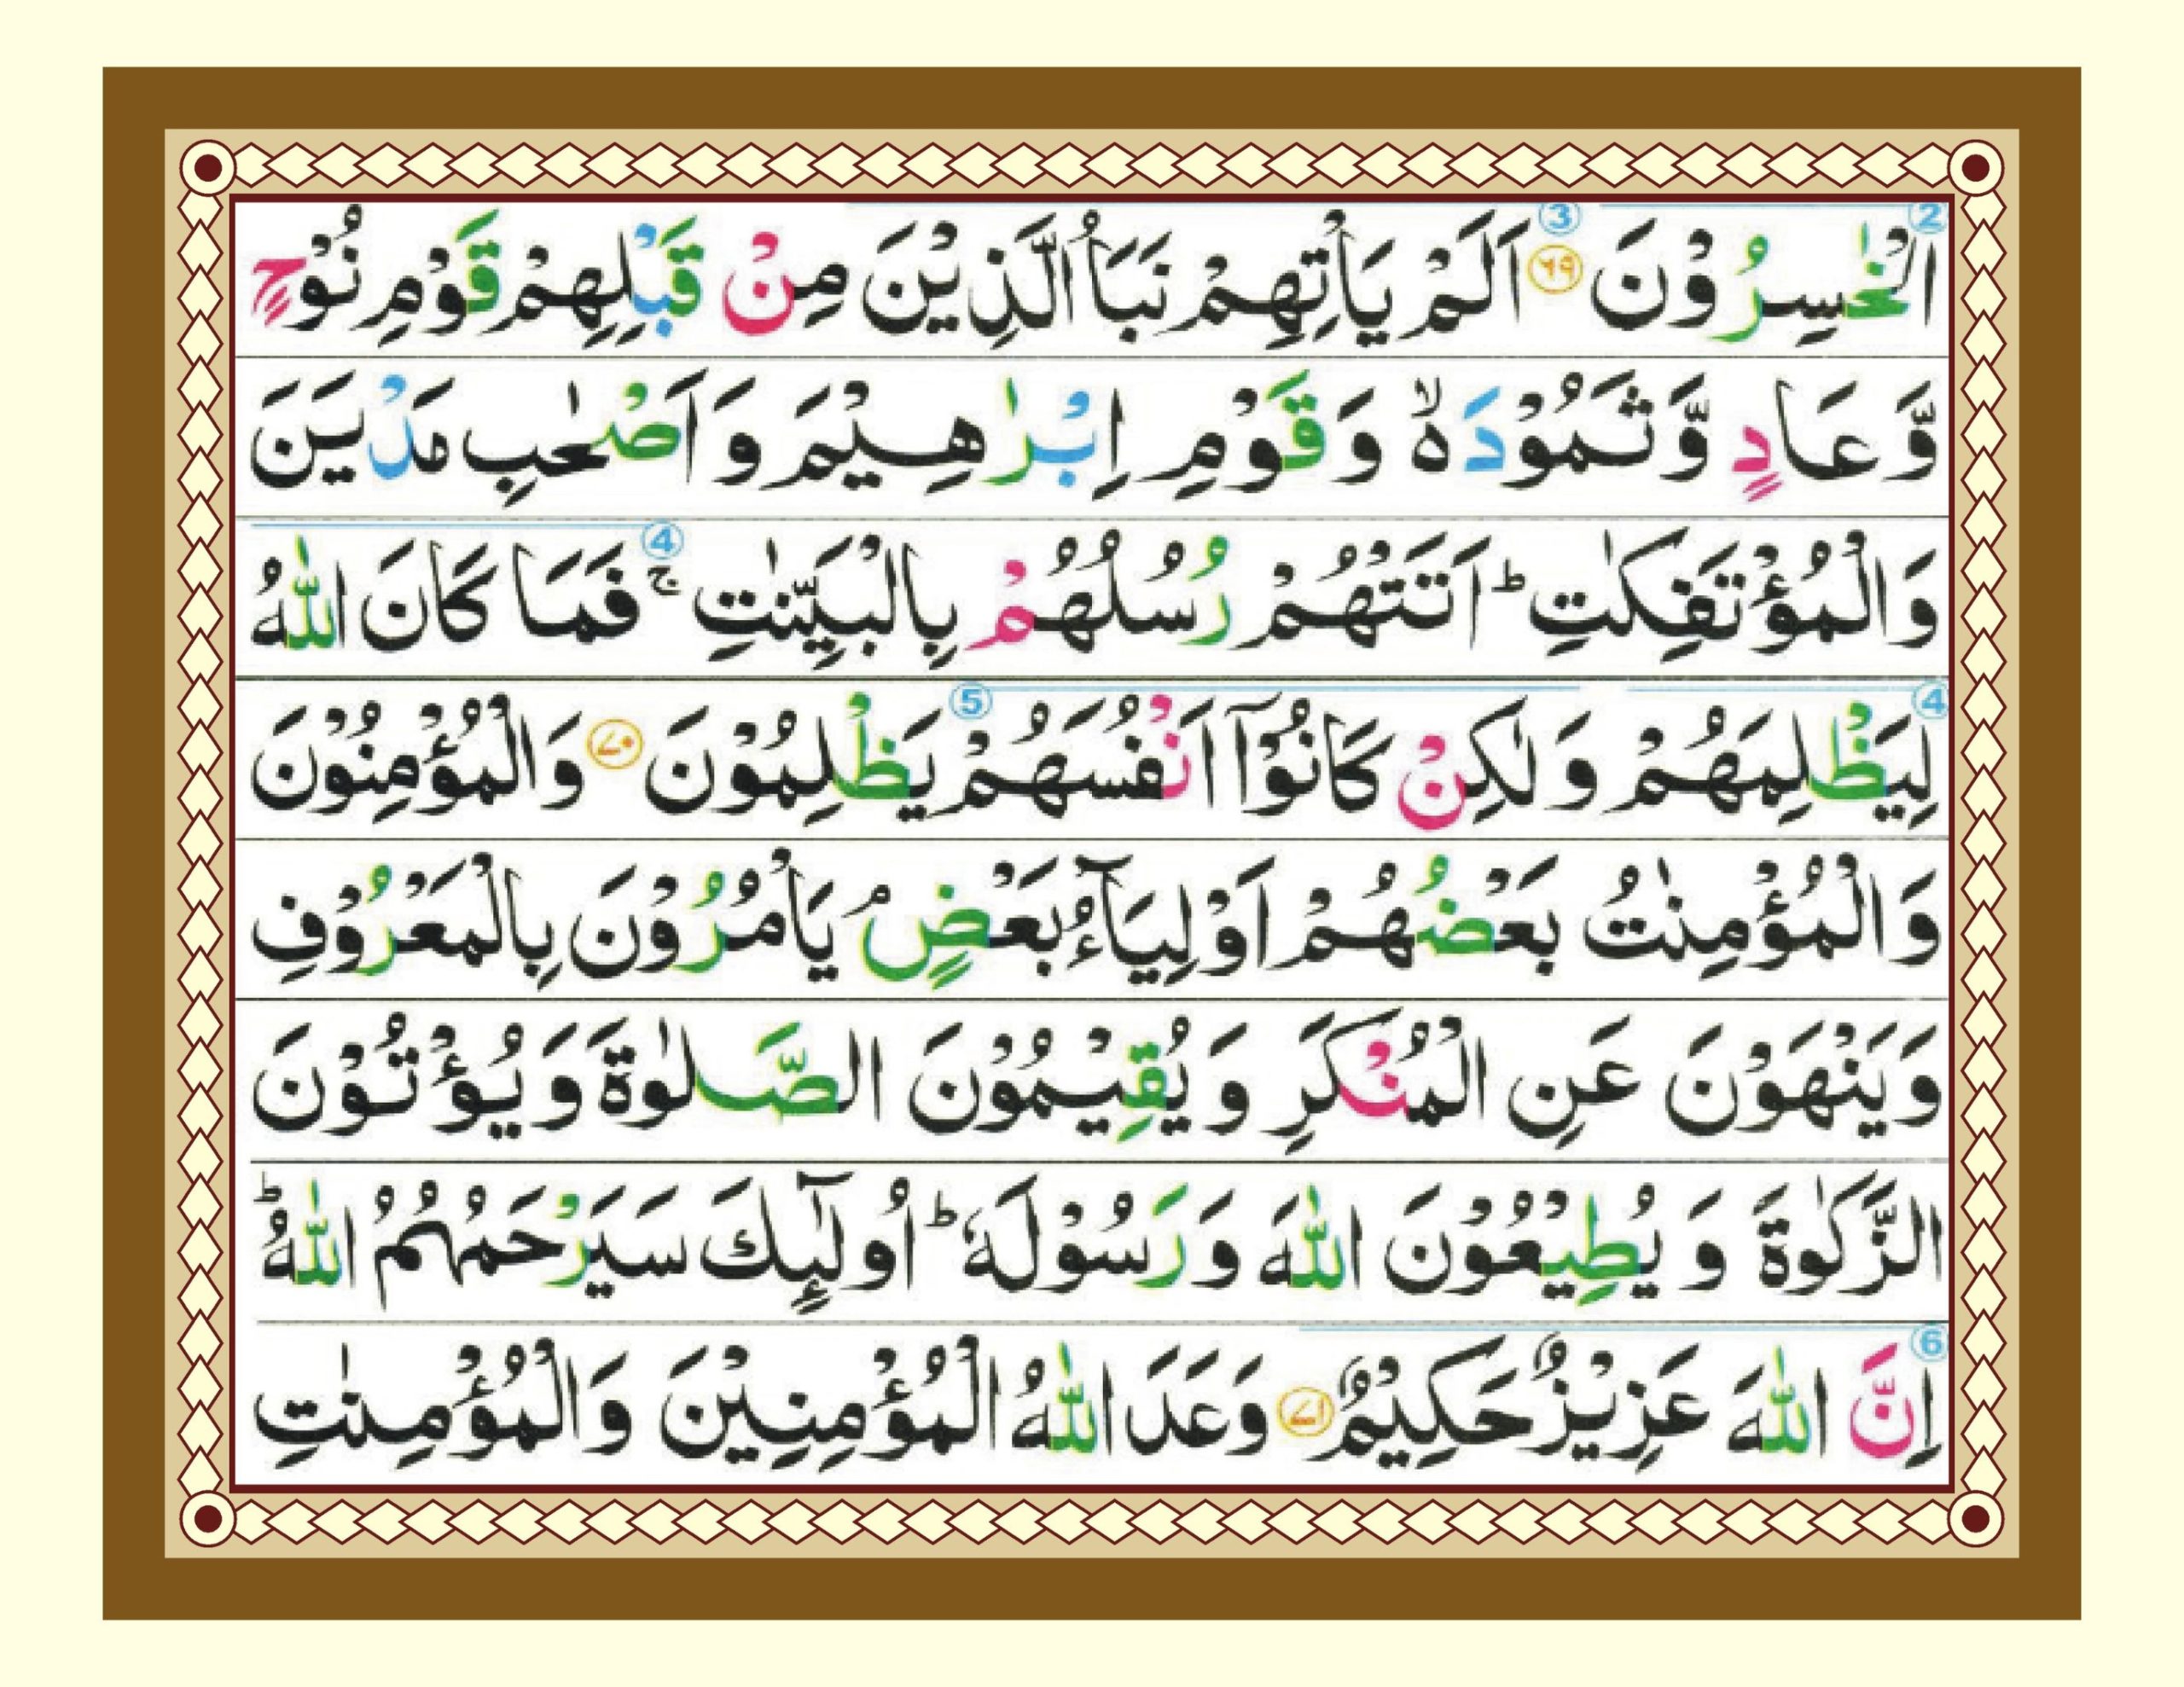 الْخٰسِرُوْنَ ﴿۶۹﴾ اَلَمْ يَاْتِهِمْ نَبَاُ الَّذِيْنَ مِنْ قَبْلِهِمْ قَوْمِ نُوْحٍ
وَّ عَادٍ وَّ ثَمُوْدَ ۙ۬ وَ قَوْمِ اِبْرٰهِيْمَ وَ اَصْحٰبِ مَدْيَنَ
وَ الْمُؤْتَفِكٰتِ ؕ اَتَتْهُمْ رُسُلُهُمْ بِالْبَيِّنٰتِ ۚ فَمَا كَانَ اللّٰهُ
لِيَظْلِمَهُمْ وَ لٰكِنْ كَانُوْۤا اَنْفُسَهُمْ يَظْلِمُوْنَ ﴿۷۰﴾ وَ الْمُؤْمِنُوْنَ
وَ الْمُؤْمِنٰتُ بَعْضُهُمْ اَوْلِيَآءُ بَعْضٍ ۘ يَاْمُرُوْنَ بِالْمَعْرُوْفِ
وَ يَنْهَوْنَ عَنِ الْمُنْكَرِ وَ يُقِيْمُوْنَ الصَّلٰوةَ وَ يُؤْتُوْنَ
الزَّكٰوةَ وَ يُطِيْعُوْنَ اللّٰهَ وَ رَسُوْلَهٗ ؕ اُولٰٓئِكَ سَيَرْحَمُهُمُ اللّٰهُ ؕ
اِنَّ اللّٰهَ عَزِيْزٌ حَكِيْمٌ ﴿۷۱﴾ وَعَدَ اللّٰهُ الْمُؤْمِنِيْنَ وَ الْمُؤْمِنٰتِ